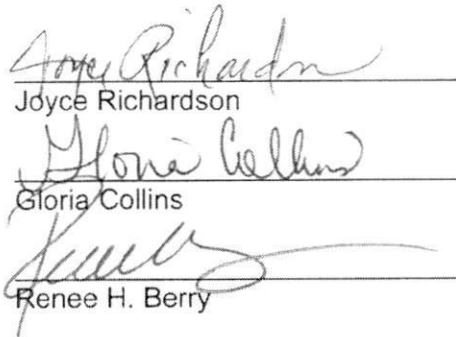 Joyce Richardson
Joyce Richardson
Gloria Collins
Gloria Collins
Renee H. Berry